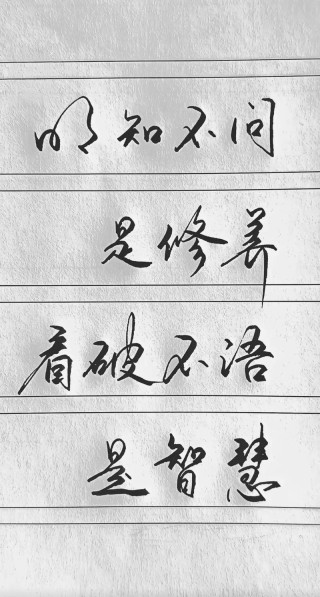 明知不问
是修养
看破不语
是智慧